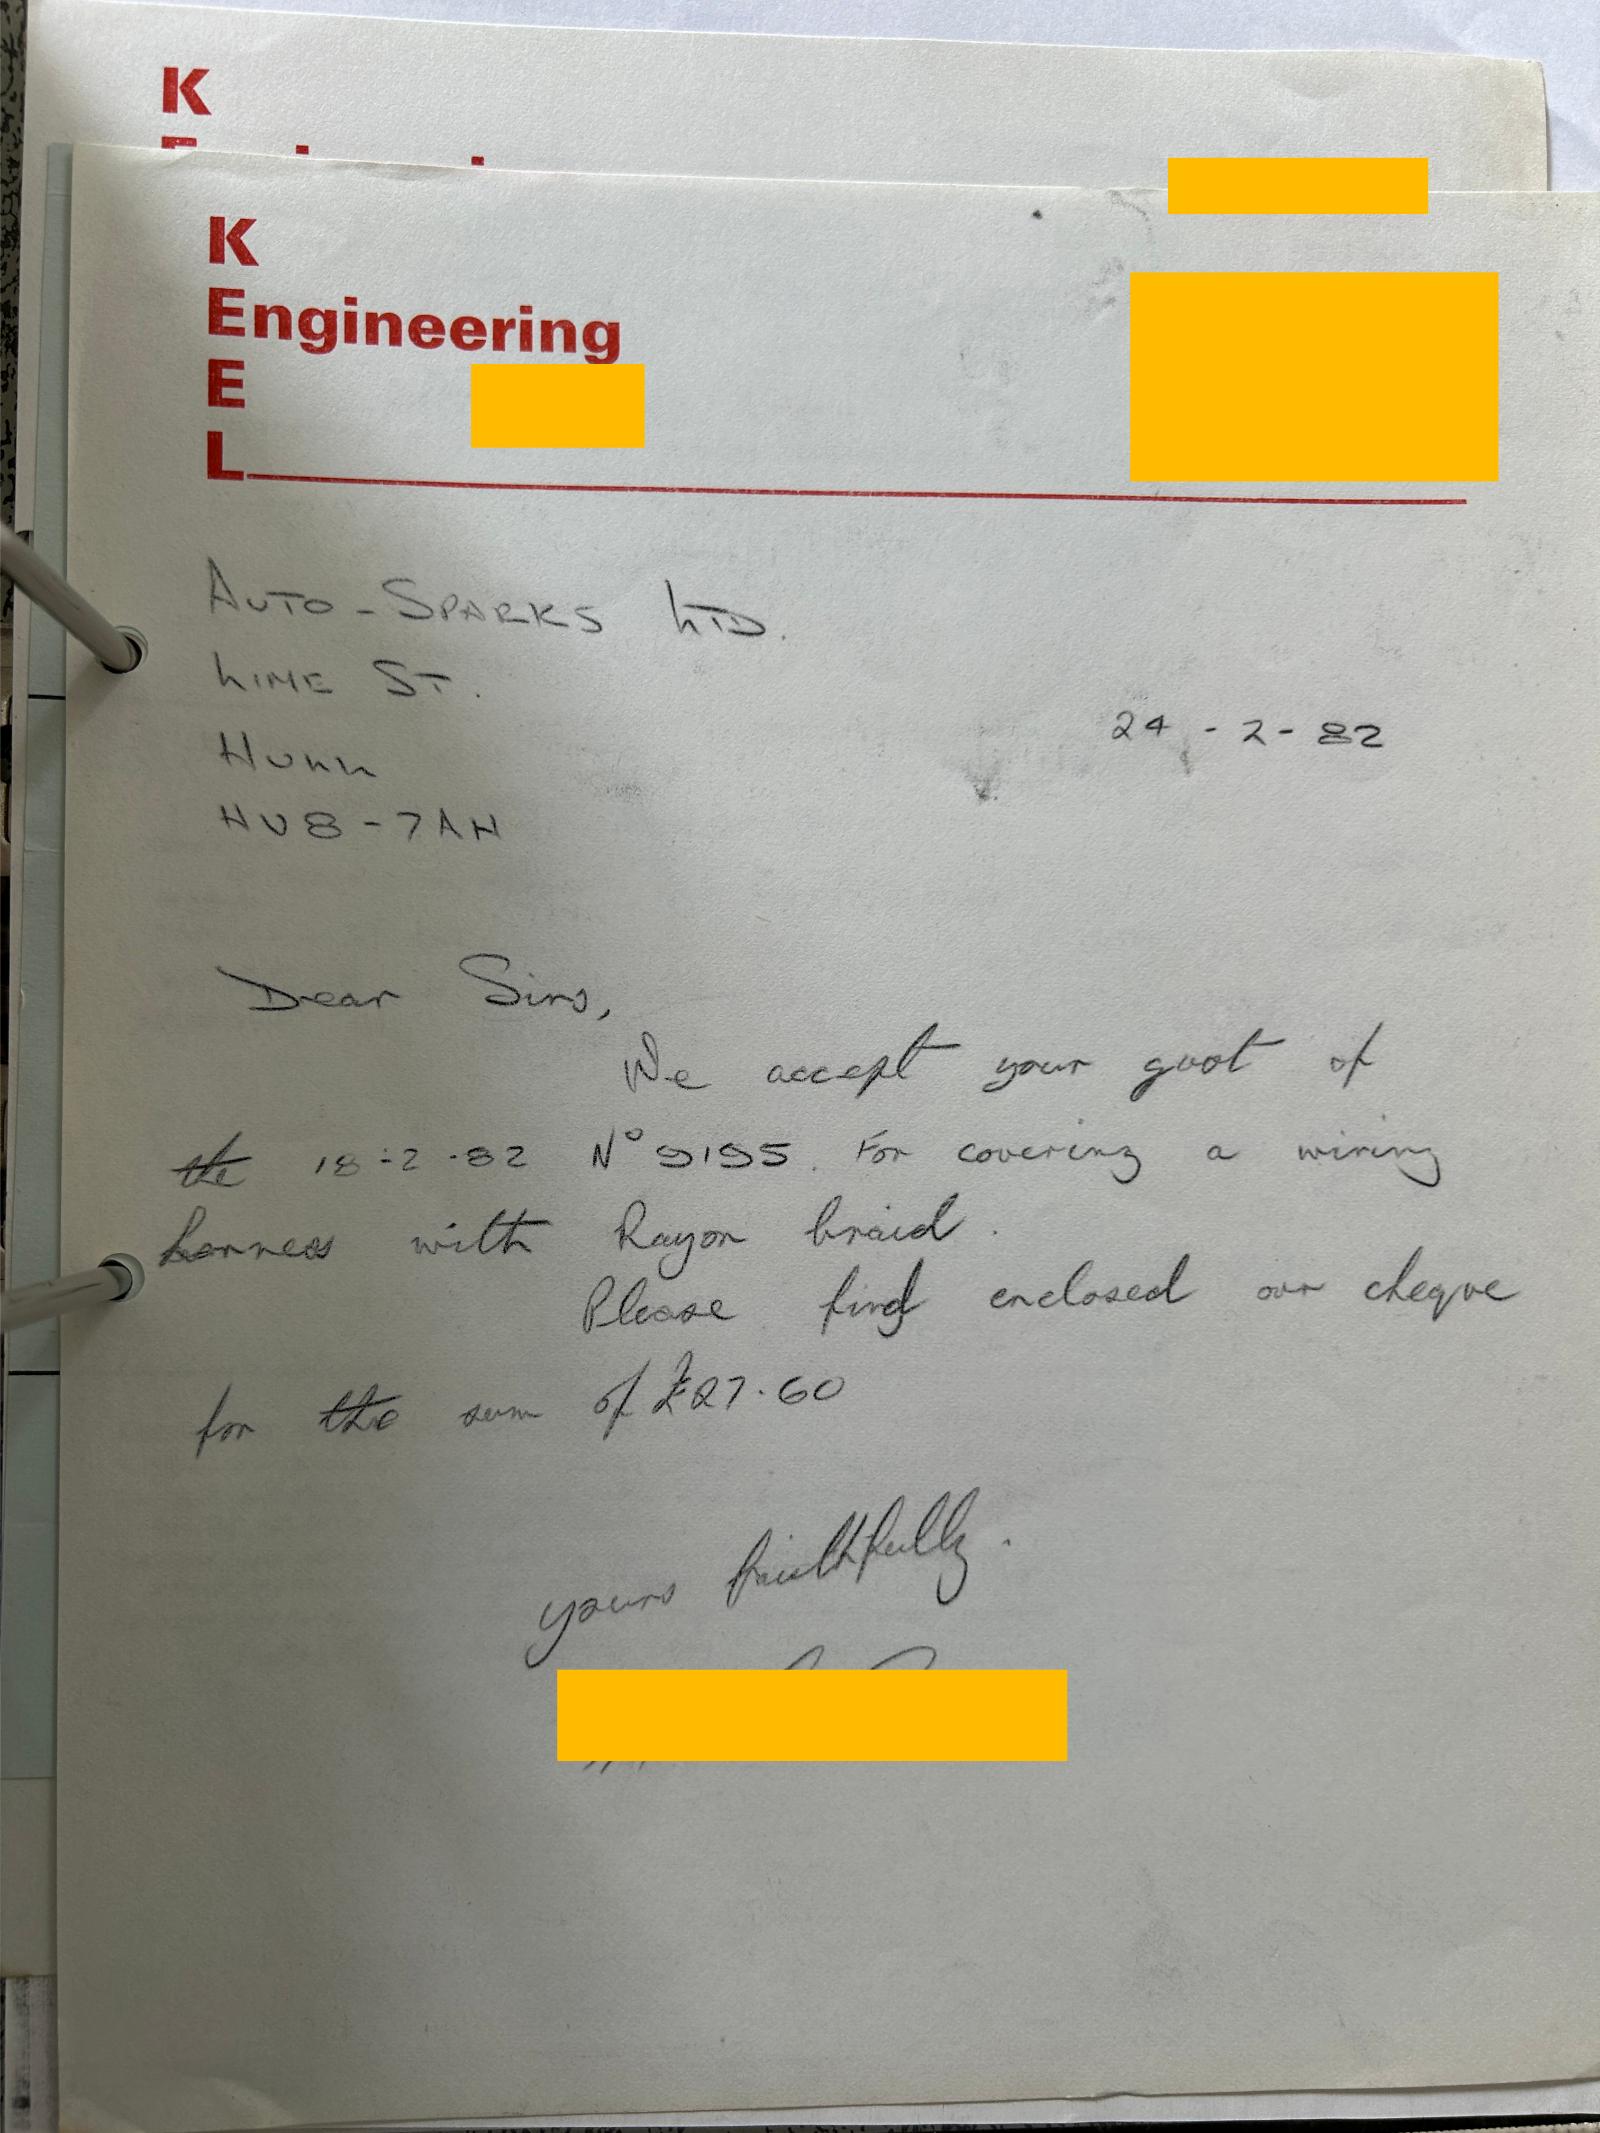 K
K
Engineering
E
L
AUTO-SPARKS LTD.
LIME ST.
24-2-82
HULL
HU8-7AH
Dear Sirs,
We accept your quot of
the 18-2-82 Nº 9195. For covering a wiring
harness with Rayon braid.
Please find enclosed our cheque
for the sum of £27.60
yours faithfully.